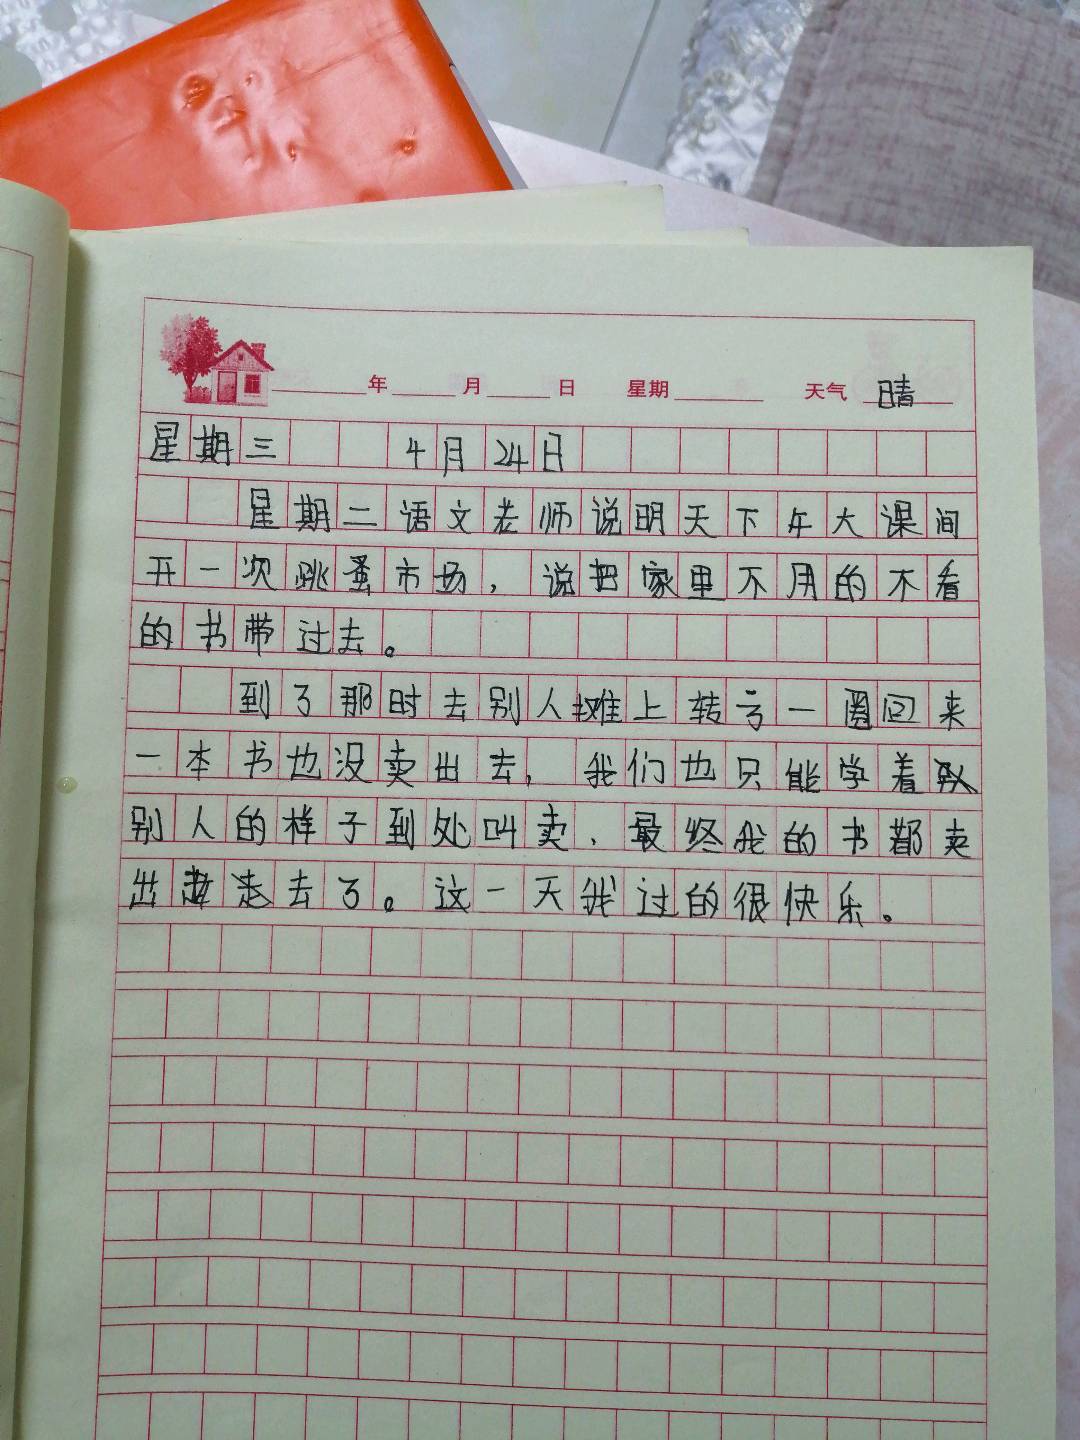 年 月 日 星期 天气 晴
星期三 4月24日
星期二语文老师说明天下午大课间
开一次跳蚤市场，说把家里不用的不看
的书带过去。
到了那时去别人摊上转了一圈回来
一本书也没卖出去，我们也只能学着
别人的样子到处叫卖、最终我的书都卖
出去了。这一天我过的很快乐。